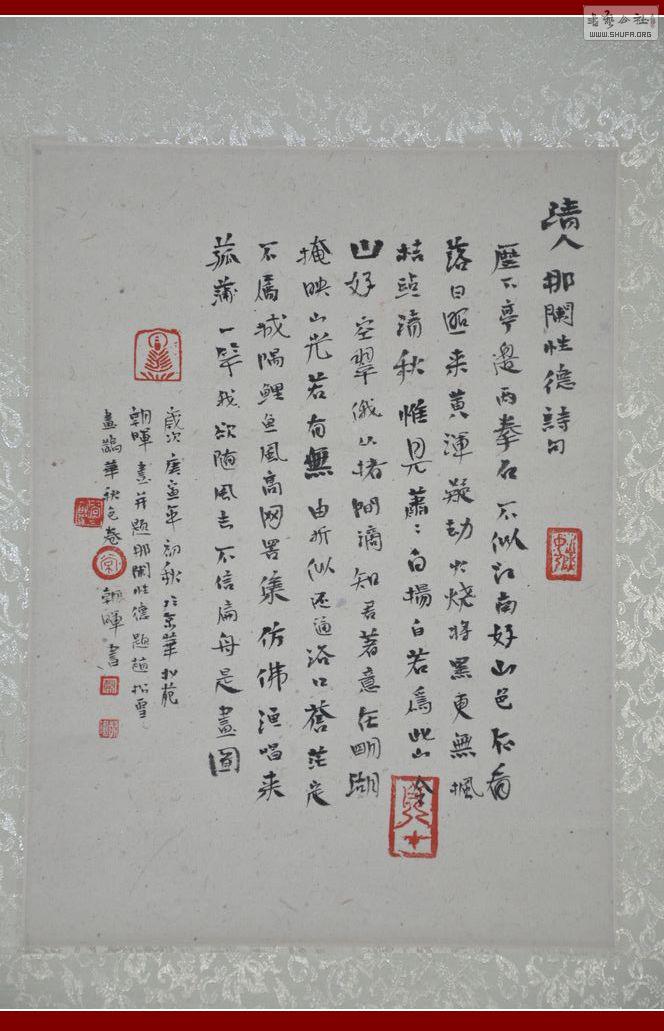 书艺公社
WWW.SHUFA.ORG
清人那闌性德詩句
歷下亭邊兩拳石不似江南好山色乍看
落日照来黃渾疑劫火燒將黑更無楓
桔點清秋惟見蕭〻白楊白若爲此山令
山好空翠俄从楮間滴知君著意在明湖
掩映山光若有無由折似還通洛口蒼茫定
不屬城隅鯉魚風高网罟集仿佛漁唱来
菰蒲一竿我欲随風去不信扁舟是畫圖
歲次庚寅年初秋於京華松苑
朝暉畫并題那闌性德題趙松雪
畫鵲華秋色卷 朝暉書